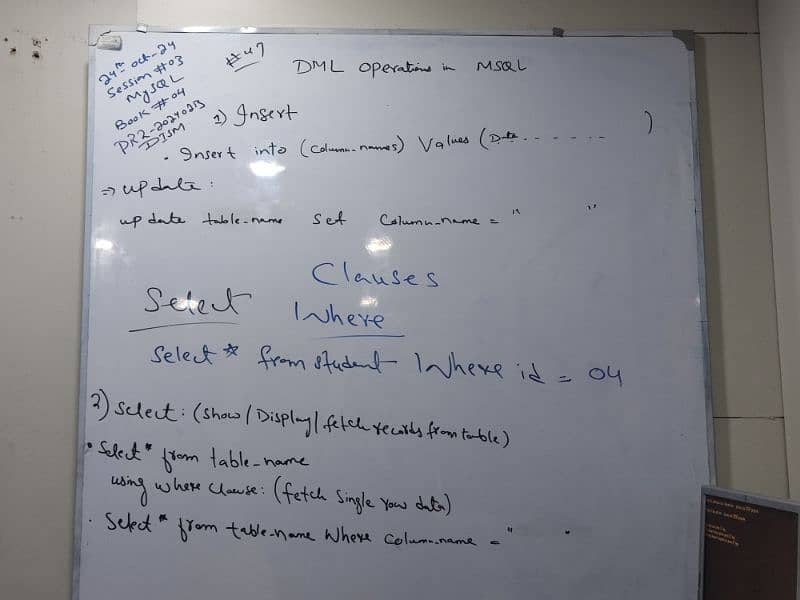 24th oct-24
Session #03
MySQL
Book #04
PR2-202402B
DISM
#47
DML operations in MSQL
1) Insert
• Insert into (column-names) Values (Data - - - - - - )
⇒ update :
update table-name set Column-name = " "
Clauses
Select Where
Select * from student Where id = 04
2) Select : (Show / Display / fetch records from table)
• Select * from table-name
using where clause : (fetch Single row data)
• Select * from table-name Where column-name = " "